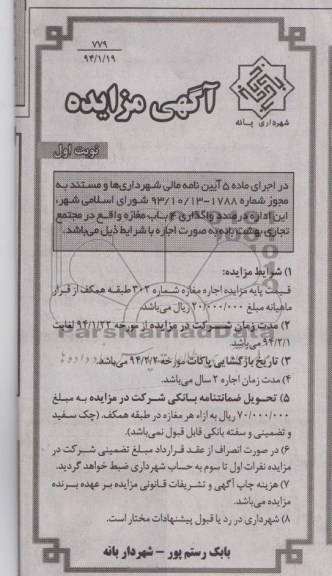 ۷۷۹
۹۴/۱/۱۹
آگهی مزایده
شهرداری بانه
نوبت اول
در اجرای ماده ۵ آیین نامه مالی شهرداری‌ها و مستند به
مجوز شماره ۱۷۸۸-۹۳/۱۰/۱۳ شورای اسلامی شهر،
این اداره درصدد واگذاری ۴ باب مغازه واقع در مجتمع
تجاری بهشت بانه به صورت اجاره با شرایط ذیل می‌باشد.
۱) شرایط مزایده:
قیمت پایه مزایده اجاره مغازه شماره ۳۰۲ طبقه همکف از قرار
ماهیانه مبلغ ۲۰/۰۰۰/۰۰۰ ریال می‌باشد.
۲) مدت زمان شرکت در مزایده از مورخه ۹۴/۱/۲۲ لغایت
۹۴/۲/۱ می‌باشد.
ParsNamadData
۳) تاریخ بازگشایی پاکات مورخه ۹۴/۲/۲ می‌باشد.
۴) مدت زمان اجاره ۲ سال می‌باشد.
۵) تحویل ضمانتنامه بانکی شرکت در مزایده به مبلغ
۷۰/۰۰۰/۰۰۰ ریال به ازاء هر مغازه در طبقه همکف. (چک سفید
و تضمینی و سفته بانکی قابل قبول نمی‌باشد).
۶) در صورت انصراف از عقد قرارداد مبلغ تضمینی شرکت در
مزایده نفرات اول تا سوم به حساب شهرداری ضبط خواهد گردید.
۷) هزینه چاپ آگهی و تشریفات قانونی مزایده بر عهده برنده
مزایده می‌باشد.
۸) شهرداری در رد یا قبول پیشنهادات مختار است.
بابک رستم پور – شهردار بانه